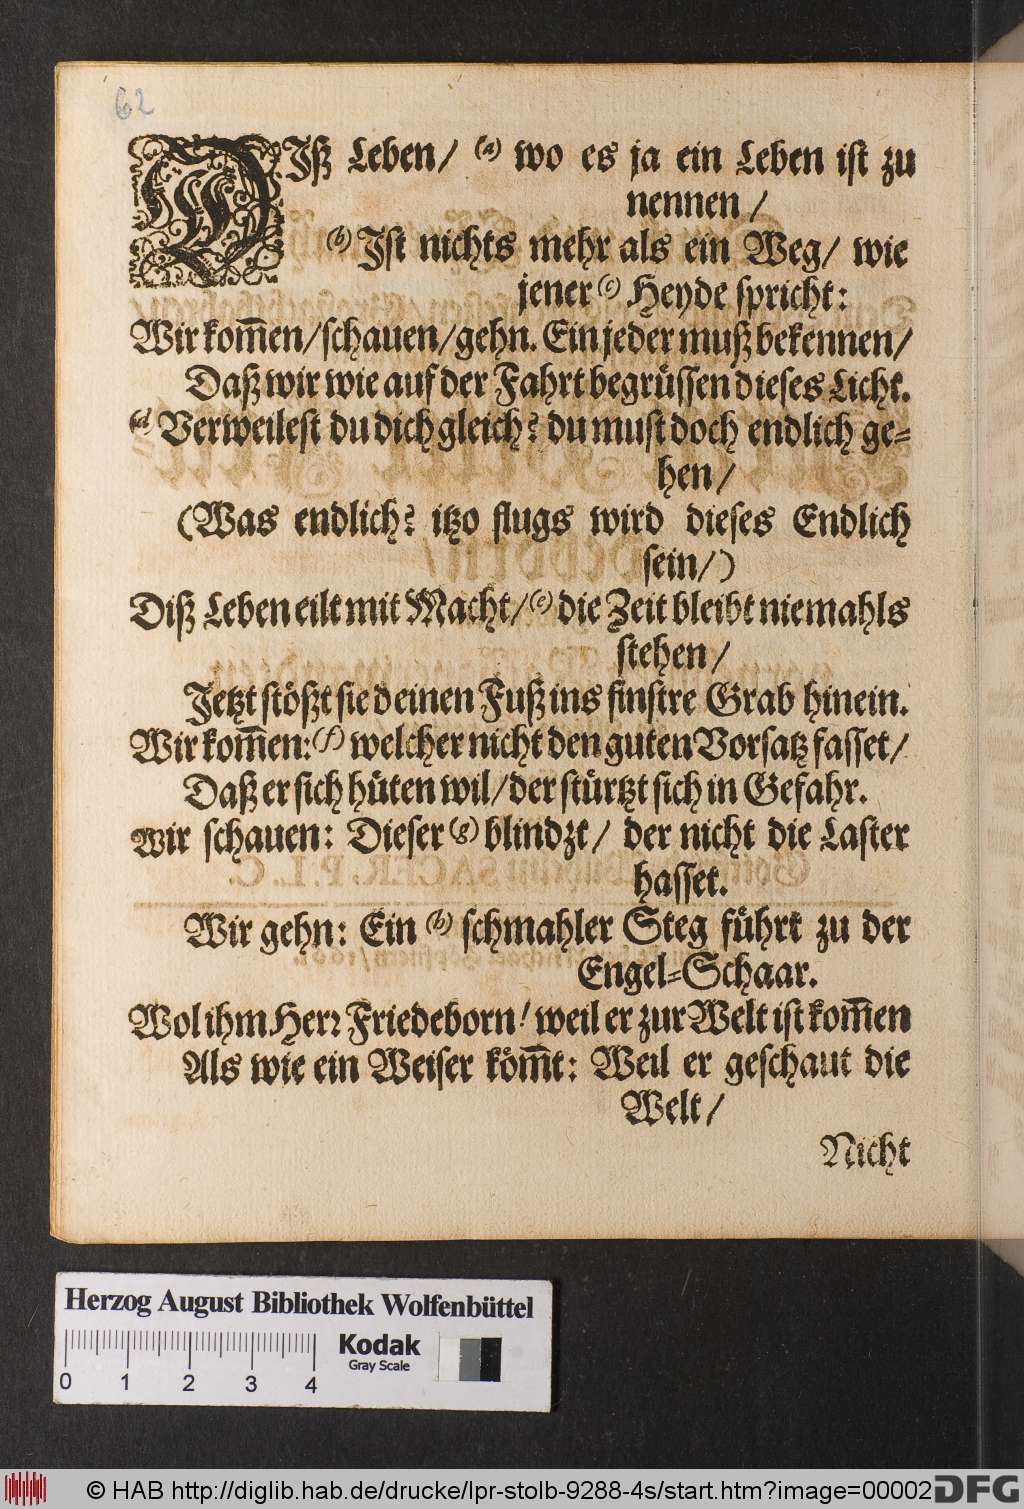 62
DIß Leben/ (a) wo es ja ein Leben ist zu
nennen /
(b) Ist nichts mehr als ein Weg/ wie
jener (c) Heyde spricht:
Wir kom̅en/schauen/gehn. Ein jeder muß bekennen/
Daß wir wie auf der Fahrt begrüssen dieses Licht.
(d) Verweilest du dich gleich? du must doch endlich ge-
hen/
(Was endlich? itzo flugs wird dieses Endlich
sein/)
Diß Leben eilt mit Macht/(e) die Zeit bleibt niemahls
stehen/
Jetzt stößt sie deinen Fuß ins finstre Grab hinein.
Wir kom̅en:(f) welcher nicht den guten Vorsatz fasset/
Daß er sich hüten wil/der stürtzt sich in Gefahr.
Wir schauen: Dieser (g) blindzt/ der nicht die Laster
hasset.
Wir gehn: Ein (h) schmahler Steg führt zu der
Engel-Schaar.
Wol ihm Herr Friedeborn! weil er zur Welt ist kom̅en
Als wie ein Weiser köm̅t: Weil er geschaut die
Welt/
Nicht
Herzog August Bibliothek Wolfenbüttel
Kodak
Gray Scale
0 1 2 3 4
© HAB http://diglib.hab.de/drucke/lpr-stolb-9288-4s/start.htm?image=00002
DFG